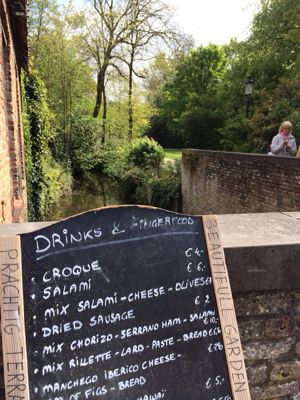 DRINKS & FINGERFOOD
• CROQUE € 4.-
• SALAMI € 6.-
• MIX SALAMI - CHEESE - OLIVES
• DRIED SAUSAGE € 2
• MIX CHORIZO - SERRANO HAM - SALAMI € 10.-
• MIX RILLETTE - LARD - PASTE - BREAD
• MANCHEGO IBERICO CHEESE -
OF FIGS - BREAD € 5.-
PRACHTIG TERRA
BEAUTIFUL GARDEN